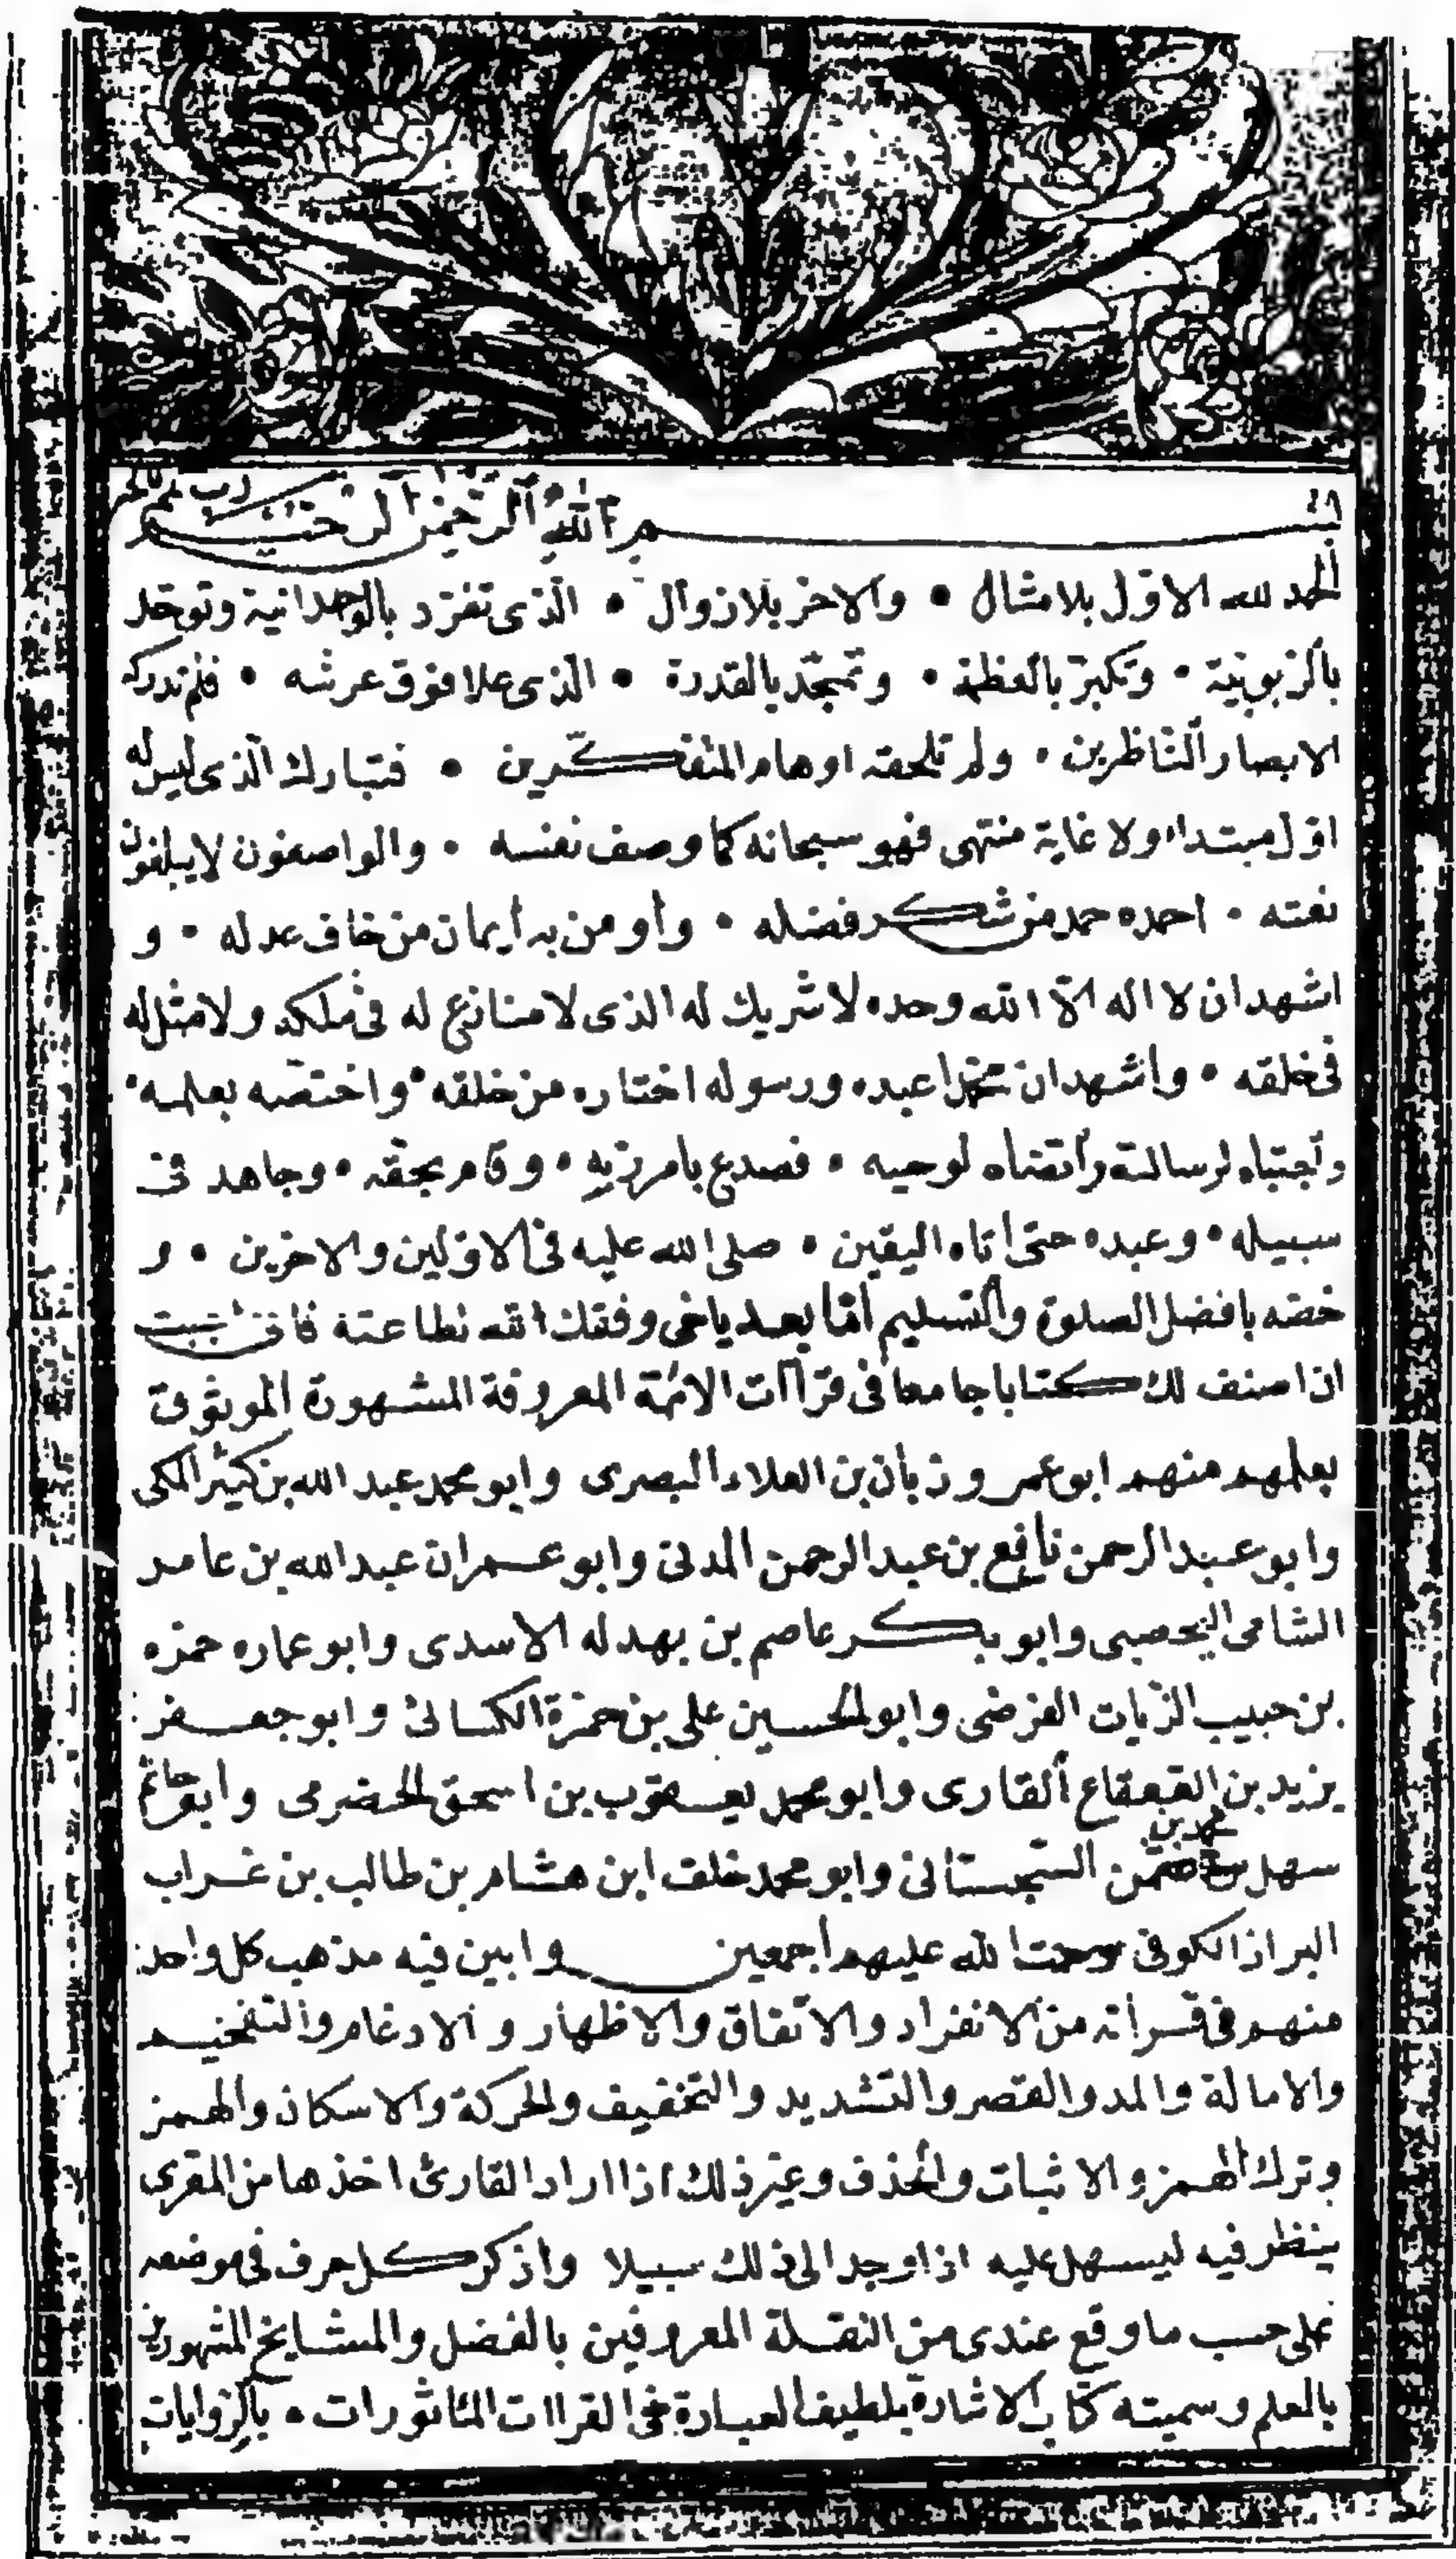 بسم الله الرحمن الرحيم رب تمم بالخير
الحمد لله الاول بلا مثال • والاخر بلا زوال • الذى تفرّد بالوحدانية وتوحّد
بالربوبيّة • وتكبرّ بالعظمة • وتمجّد بالقدرة • الذى علا فوق عرشه • فلم تدركه
الابصار الناظرين • ولم تلحقه اوهام المتفكّرين • فتبارك الذى ليس له
اوّل مبتداء ولا غاية منتهى فهو سبحانه كما وصف نفسه • والواصفون لا يبلغون
نعته • احمده حمد من شكر فضله • وأومن به أيمان من خاف عدله • و
اشهد ان لا اله الّا الله وحده لا شريك له الذى لا منازع له فى ملكه ولا مثل له
فى خلقه • واشهد ان محمّدا عبده ورسوله اختاره من خلقه • واختصّه بعلمه •
وأجتباه لرسالته وأتمناه لوحيه • فصدع بامر ربّه • وقام بحقّه • وجاهد فى
سبيله • وعبده حتى اتاه اليقين • صلى الله عليه فى الاوّلين والاخرين • و
خصّه بافضل الصلوة والتسليم أمّا بعد ياخى وفقك الله لطاعته فانى احببت
ان اصنف لك كتابا جامعا فى قراآت الائمّة المعروفة المشهورة الموثوق
بعلمهم منهم ابو عمرو زبان بن العلاء البصرى وابو محمد عبد الله بن كثير المكى
وابو عبد الرحمن نافع بن عبد الرحمن المدنى وابو عمران عبد الله بن عامر
الشامى اليحصبى وابو بكر عاصم بن بهدله الاسدى وابو عماره حمزه
بن حبيب الزيات الفرضى وابو الحسين على بن حمزة الكسائى وابو جعفر
يزيد بن القعقاع ألقارى وابو محمد يعقوب بن اسحق الحضرمى وابو حاتم
سهل بن محمد بن السّجستانى وابو محمد خلف ابن هشام بن طالب بن غراب
البراز الكوفى رحمت الله عليهم أجمعين وابين فيه مذهب كل واحد
منهم فى قرأته من ألانفراد والاتفاق والاظهار والادغام والتفخيم
والامالة والمد والقصر والتشديد والتخفيف والحركة والاسكان والهمز
وترك الهمز والاثبات والحذف وغير ذلك اذا اراد القارئ اخذها من المقرى
ينظر فيه ليسهل عليه اذا وجد الى ذلك سبيلا واذكر كل حرف فى موضعه
على حسب ما وقع عندى من النقلة المعروفين بالفضل والمشايخ المشهورين
بالعلم وسميته كتاب الاشارة بلطيف العبارة فى القراات المأثورات • بالروايات